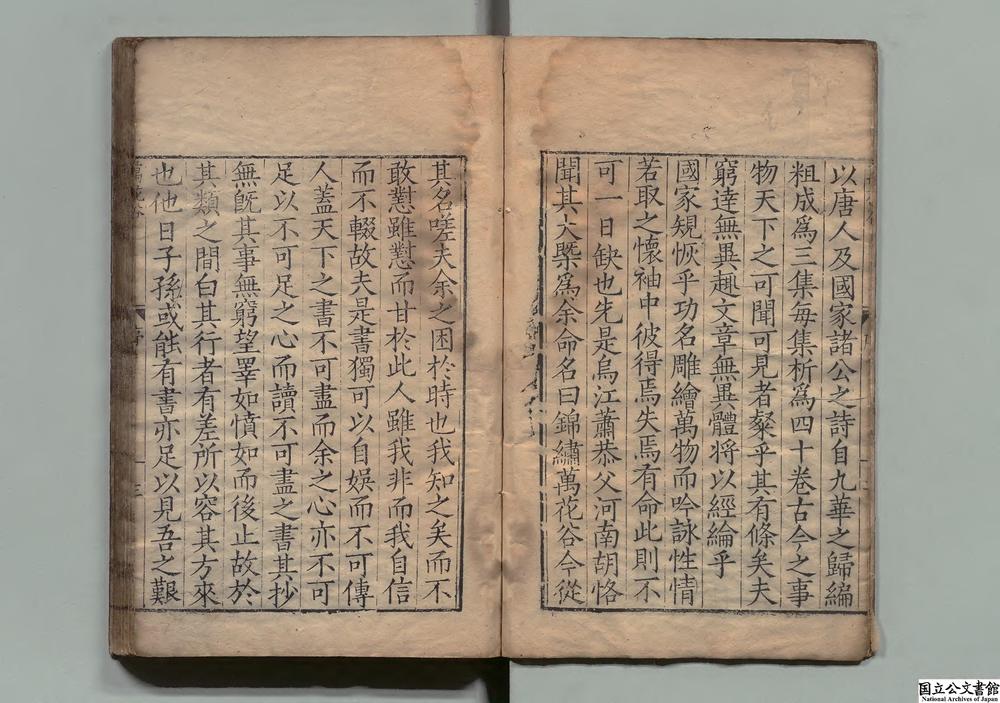 以唐人及國家諸公之詩自九華之歸編
粗成爲三集每集析爲四十卷古今之事
物天下之可聞可見者粲乎其有條矣夫
窮達無異趣文章無異體将以經綸乎
國家規恢乎功名雕繪萬物而吟詠性情
若取之懷袖中彼得焉失焉有命此則不
可一日缺也先是烏江蕭恭父河南胡恪
聞其大槩爲余命名曰錦繡萬花谷今從
其名嗟夫余之困於時也我知之矣而不
敢懟雖懟而甘於此人雖我非而我自信
而不輟故夫是書獨可以自娛而不可傳
人蓋天下之書不可盡而余之心亦不可
足以不可足之心而讀不可盡之書其抄
無旣其事無窮望睪如憤如而後止故於
其類之間白其行者有差所以容其方來
也他日子孫或能有書亦足以見吾之艱
序
三
国立公文書館
National Archives of Japan